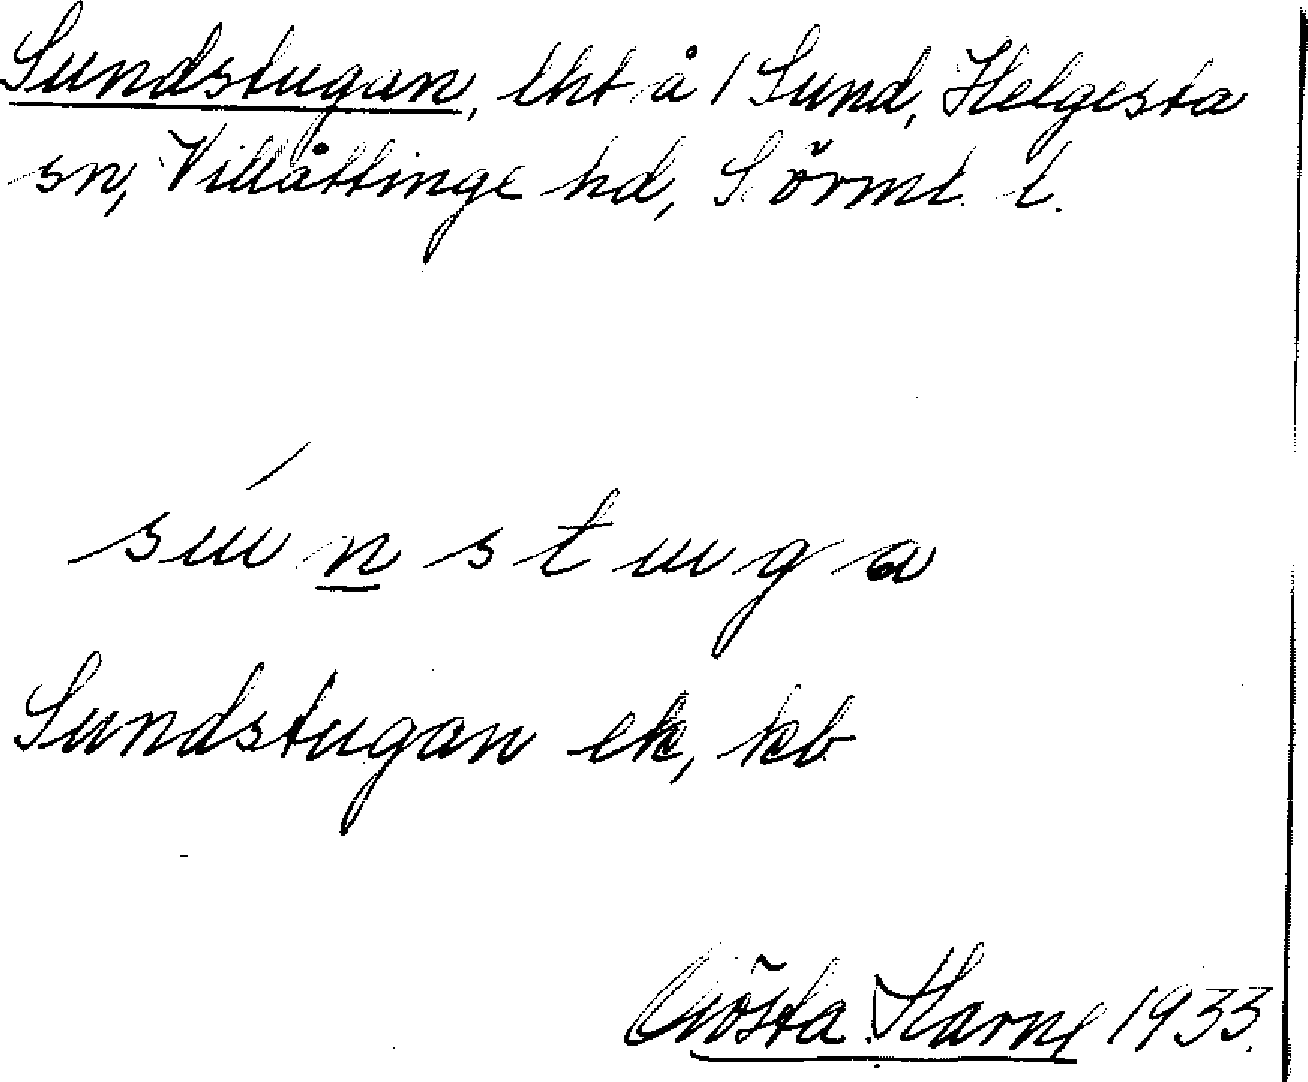 Sundstugan, lht å 1 Sund, Helgesta
sn, Villåttinge hd, Sörml. l.
súnstuga
Sundstugan ek, kb
Gösta Harne 1933.